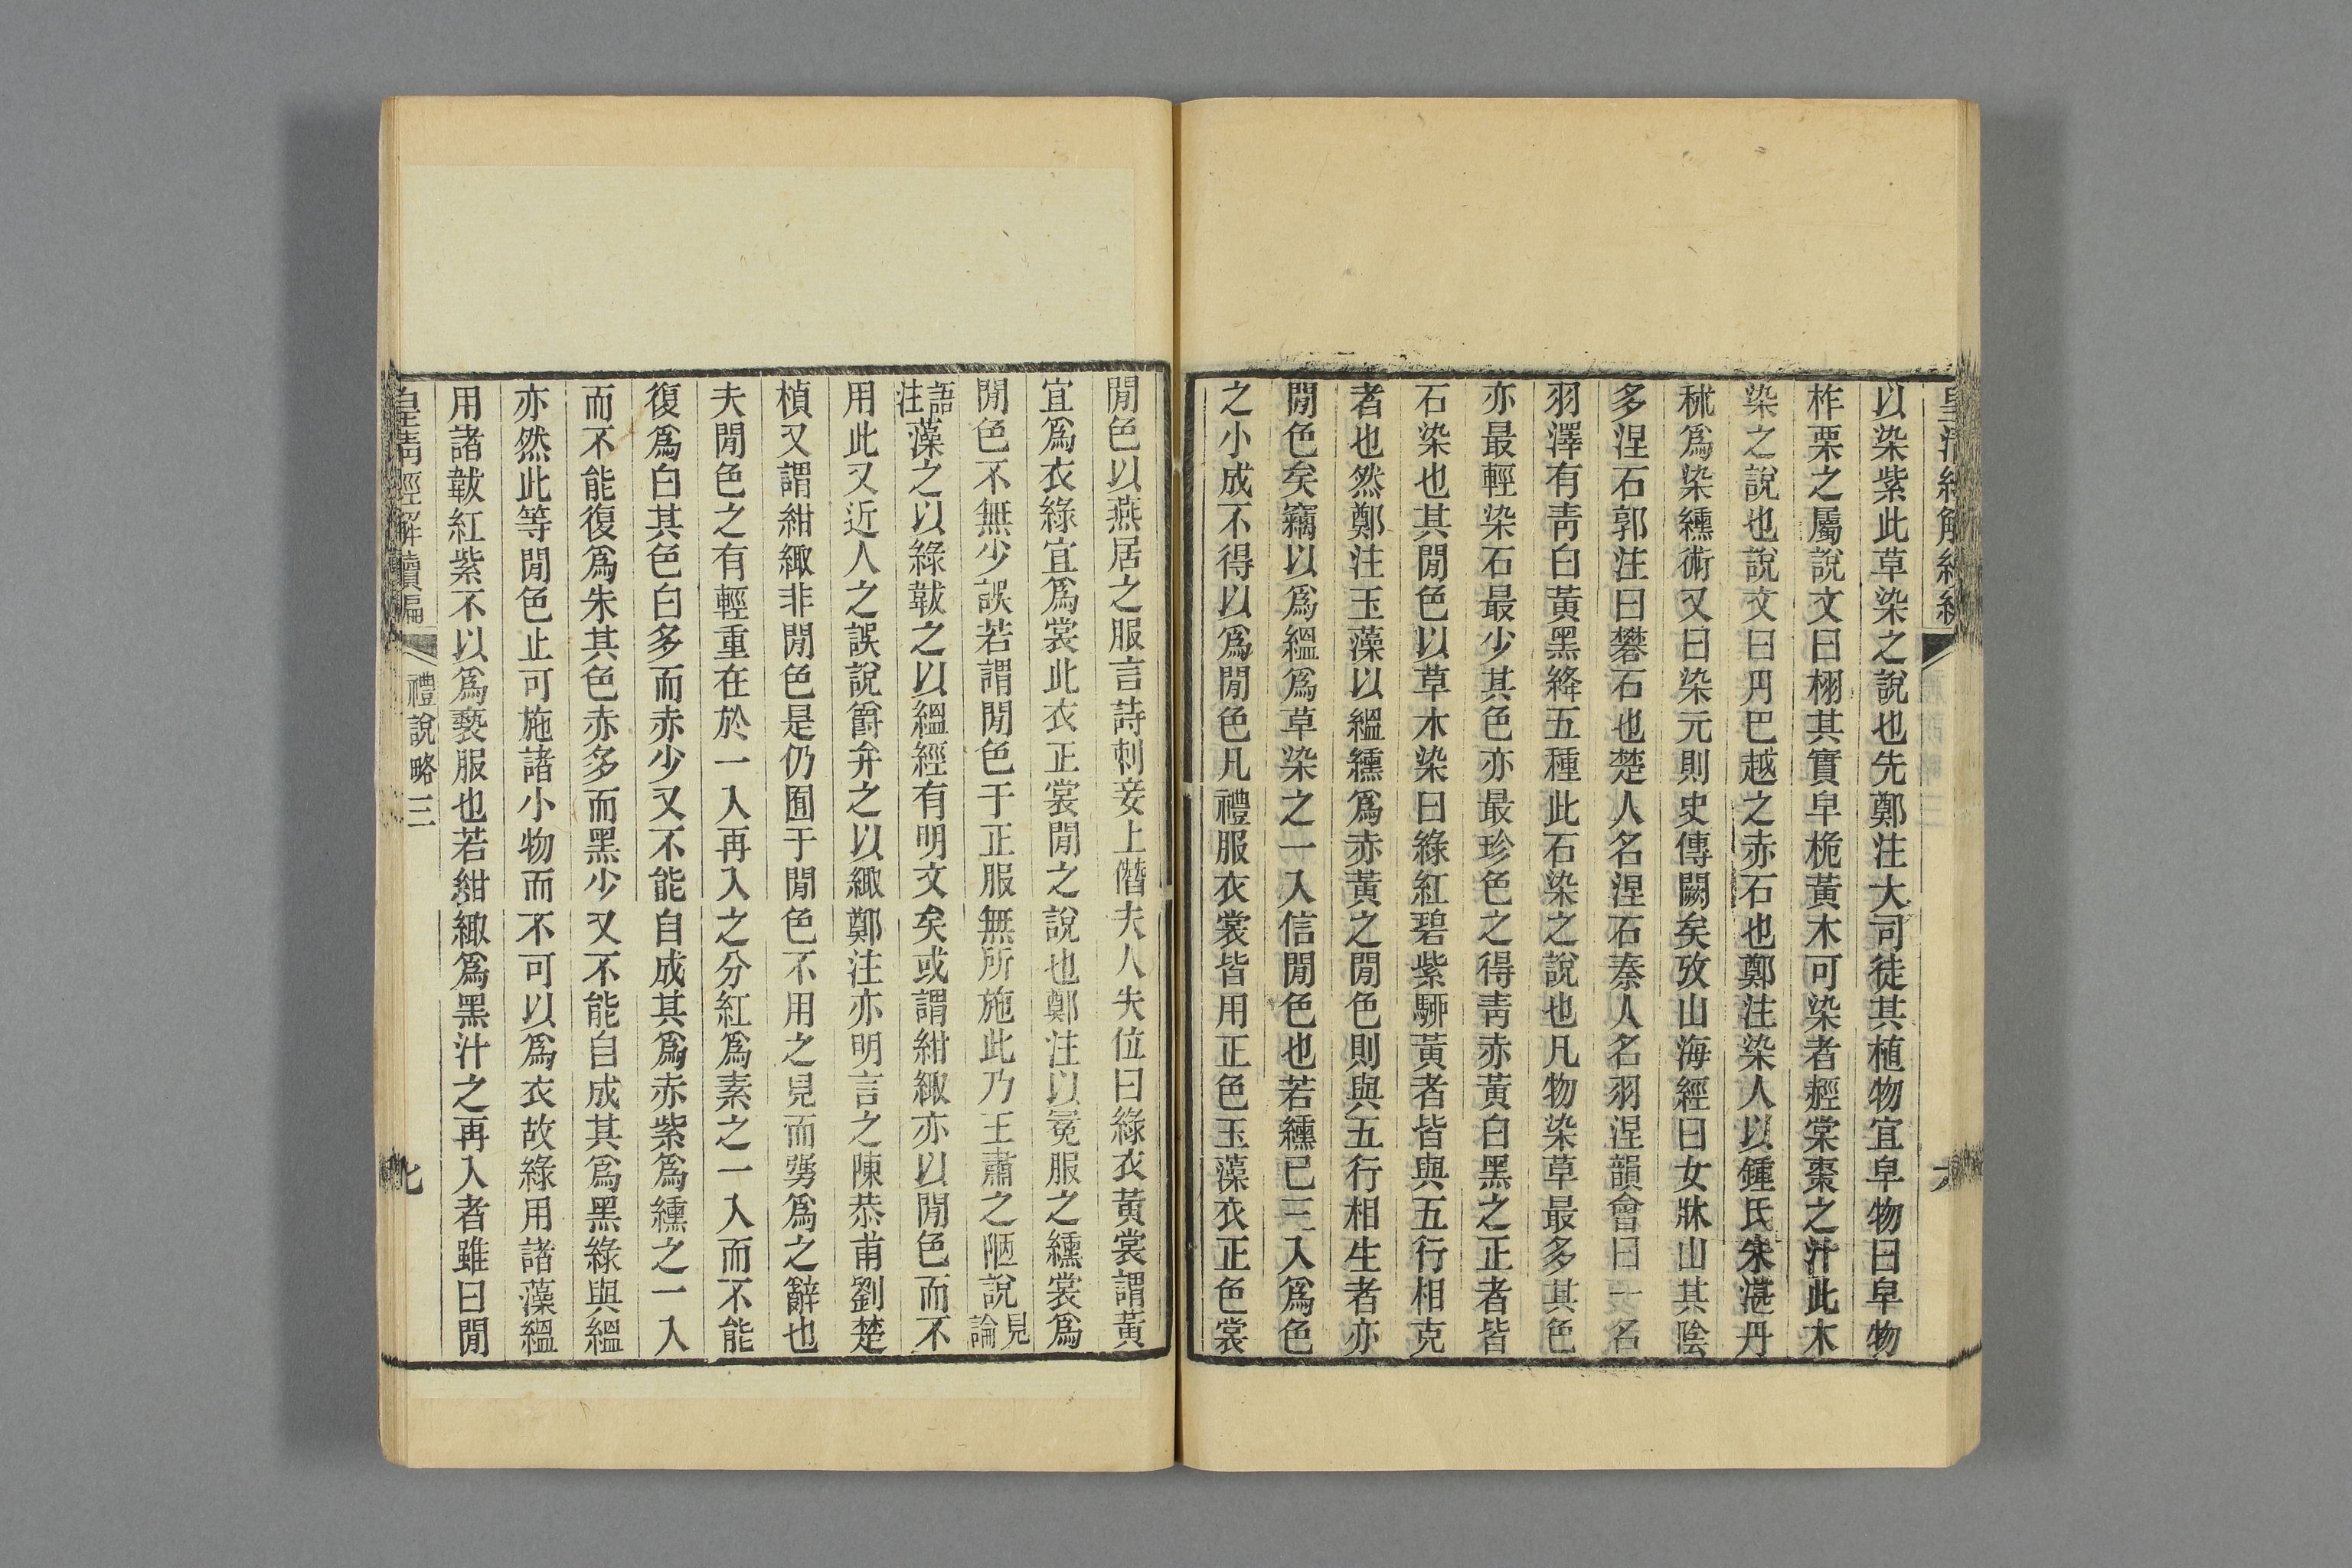 以染紫此草染之說也先鄭注大司徒其植物宜皁物曰皁物
柞栗之屬說文曰栩其實皁桅黃木可染者䞓棠棗之汁此木
染之說也說文曰丹巴越之赤石也鄭注染人以鍾氏朱湛丹
秫爲染纁術又曰染元則史傳闕矣攷山海經曰女牀山其陰
多涅石郭注曰礬石也楚人名涅石秦人名羽涅韻會曰一名
羽澤有青白黃黑絳五種此石染之說也凡物染草最多其色
亦最輕染石最少其色亦最珍色之得青赤黃白黑之正者皆
石染也其閒色以草木染曰綠紅碧紫駵黃者皆與五行相克
者也然鄭注玉藻以縕纁爲赤黃之閒色則與五行相生者亦
閒色矣竊以爲縕爲草染之一入信閒色也若纁已三入爲色
之小成不得以爲閒色凡禮服衣裳皆用正色玉藻衣正色裳
閒色以燕居之服言詩刺妾上僭夫人失位曰綠衣黃裳謂黃
宜爲衣綠宜爲裳此衣正裳閒之說也鄭注以冕服之纁裳爲
閒色不無少誤若謂閒色于正服無所施此乃王肅之陋說見論
語注藻之以綠韍之以縕經有明文矣或謂紺緅亦以閒色而不
用此又近人之誤說爵弁之以緅鄭注亦明言之陳恭甫劉楚
楨又謂紺緅非閒色是仍囿于閒色不用之見而彊爲之辭也
夫閒色之有輕重在於一入再入之分紅爲素之一入而不能
復爲白其色白多而赤少又不能自成其爲赤紫爲纁之一入
而不能復爲朱其色赤多而黑少又不能自成其爲黑綠與縕
亦然此等閒色止可施諸小物而不可以爲衣故綠用諸藻縕
用諸韍紅紫不以爲褻服也若紺緅爲黑汁之再入者雖曰閒
皇清經解續編
禮說略三
七